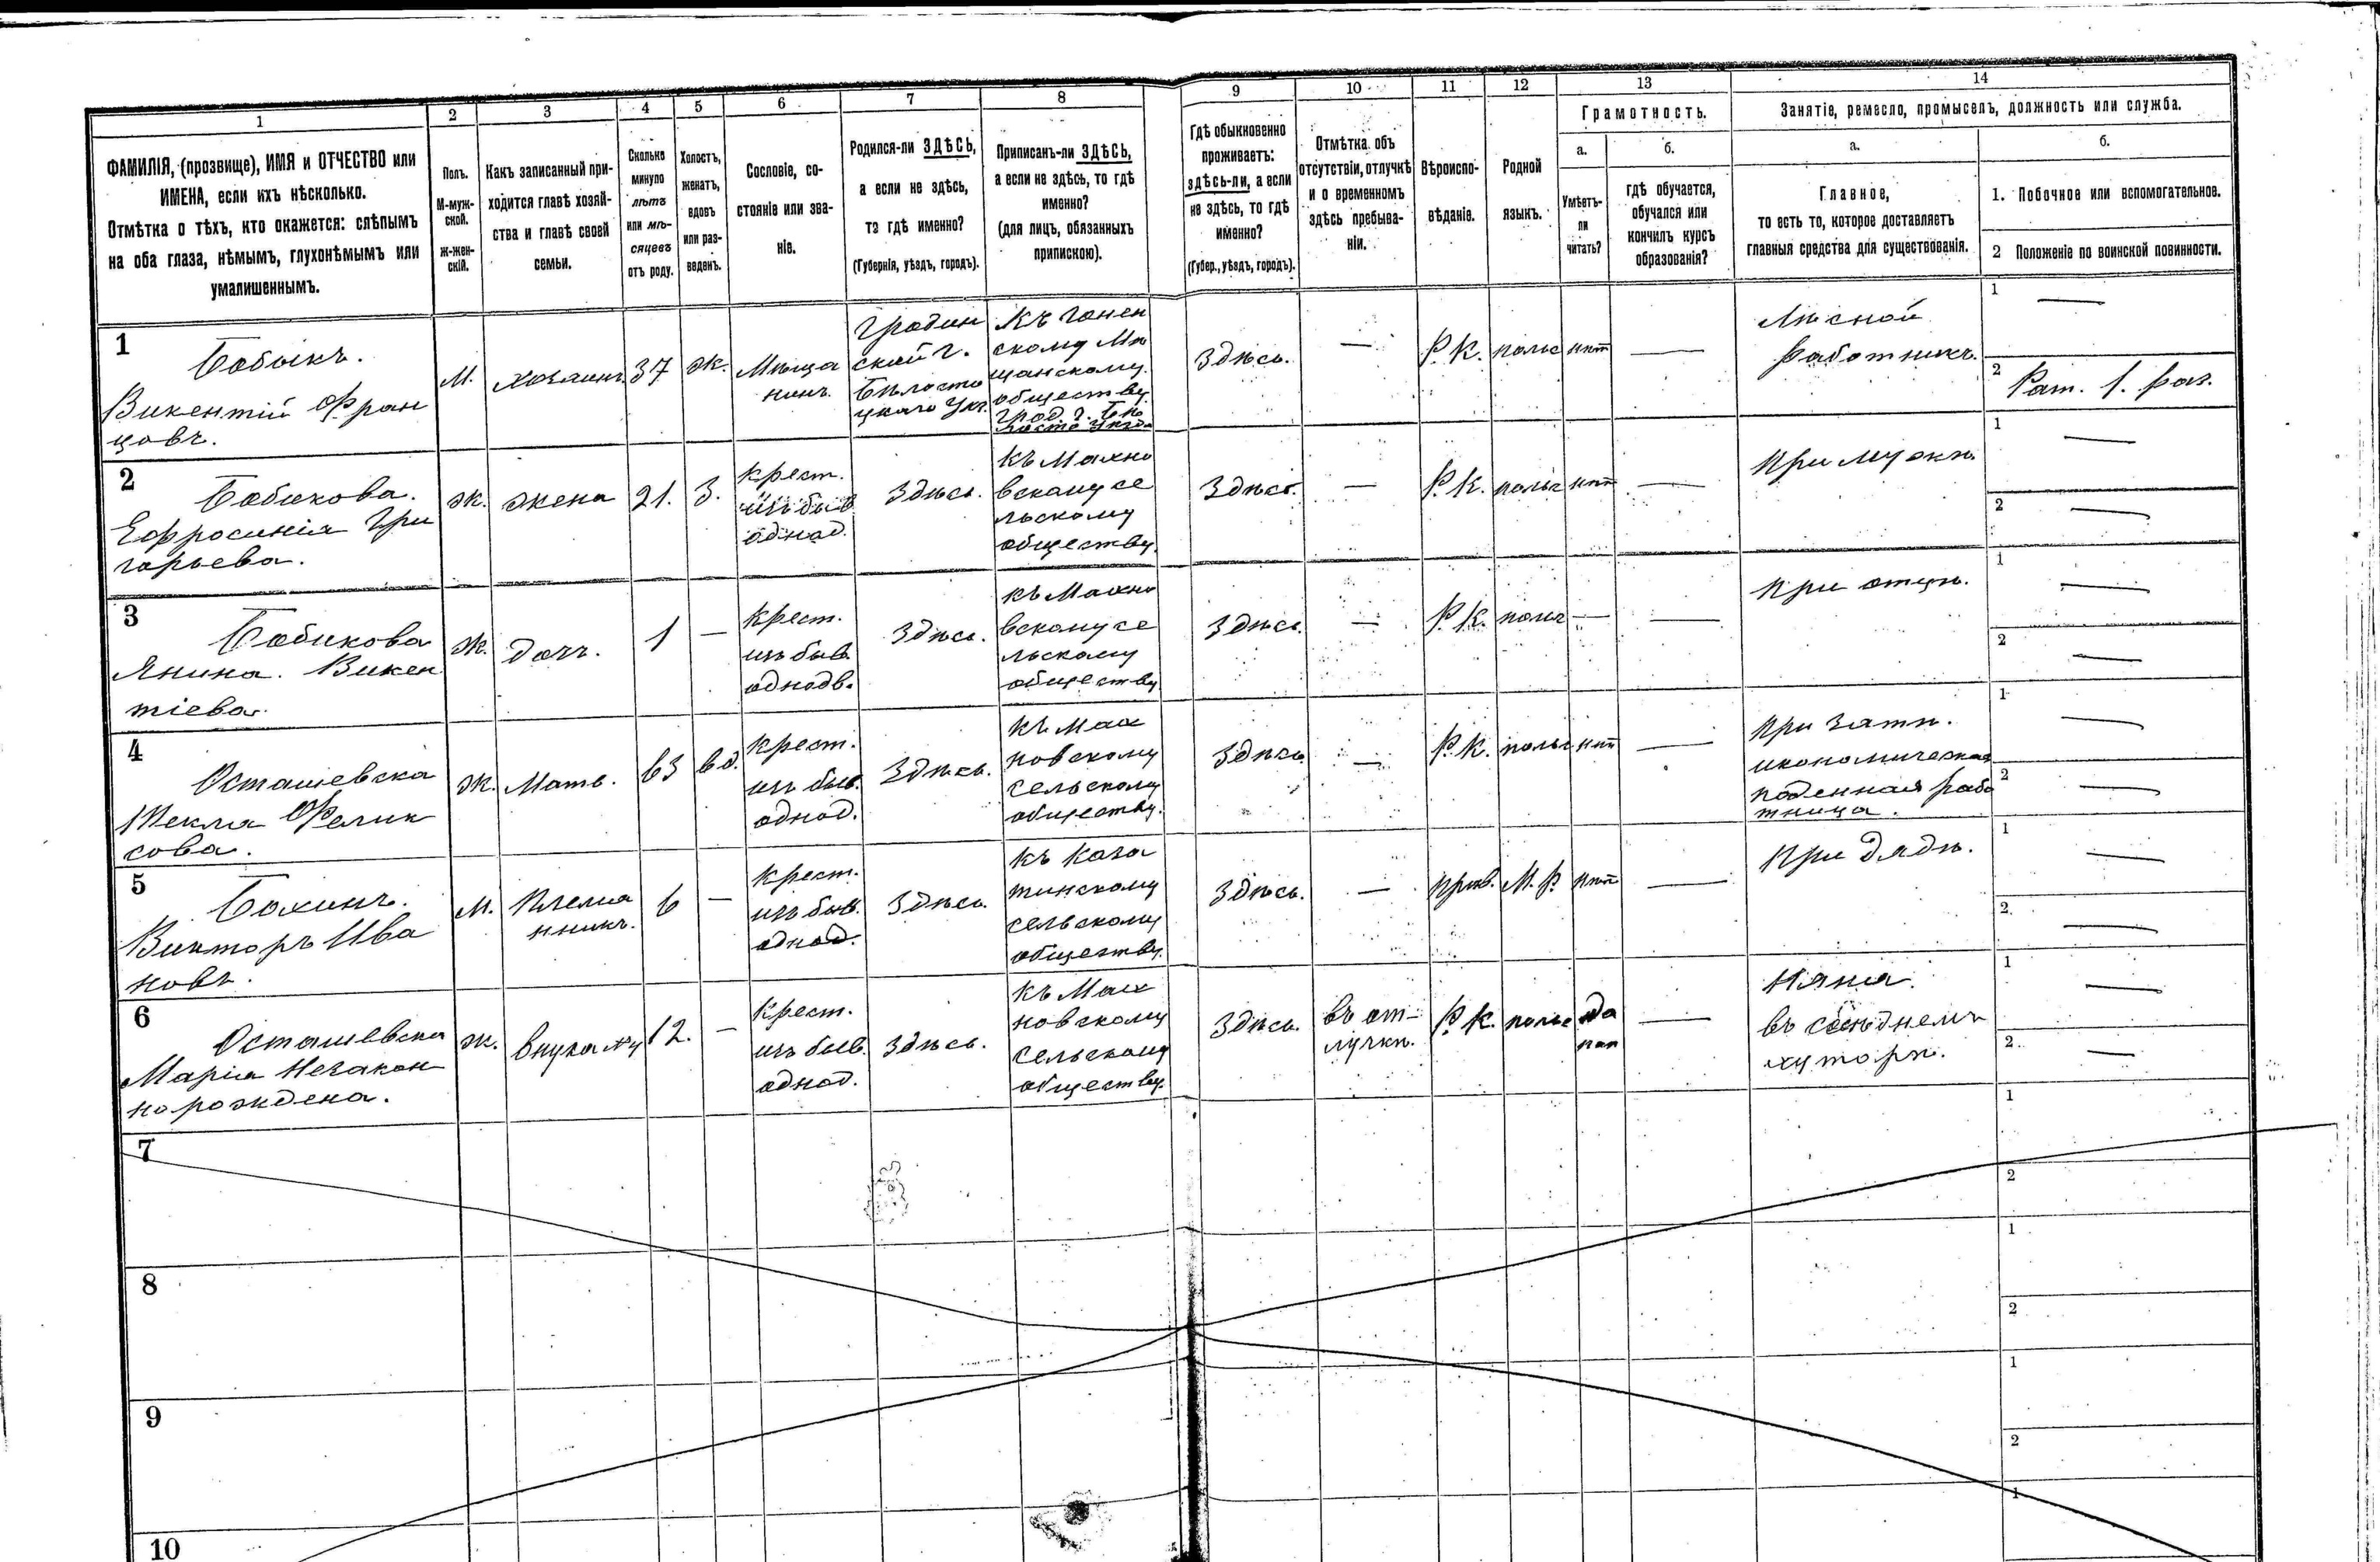 1
2
3
4
5
6
7
8
9
10
11
12
13
14
ФАМИЛІЯ, (прозвище), ИМЯ и ОТЧЕСТВО или
ИМЕНА, если ихъ нѣсколько.
Отмѣтка о тѣхъ, кто окажется: слѣпымъ
на оба глаза, нѣмымъ, глухонѣмымъ или
умалишеннымъ.
Полъ.
М-муж-
ской.
Ж-жен-
скій.
Какъ записанный при-
ходится главѣ хозяй-
ства и главѣ своей
семьи.
Сколько
минуло
лѣтъ
или мѣ-
сяцевъ
отъ роду.
Холостъ,
женатъ,
вдовъ
или раз-
веденъ.
Сословіе, со-
стояніе или зва-
ніе.
Родился-ли ЗДѢСЬ,
а если не здѣсь,
то гдѣ именно?
(Губернія, уѣздъ, городъ).
Приписанъ-ли ЗДѢСЬ,
а если не здѣсь, то гдѣ
именно?
(для лицъ, обязанныхъ
припискою).
Гдѣ обыкновенно
проживаетъ:
здѣсь-ли, а если
не здѣсь, то гдѣ
именно?
(Губер., уѣздъ, городъ).
Отмѣтка объ
отсутствіи, отлучкѣ
и о временномъ
здѣсь пребыва-
ніи.
Вѣроиспо-
вѣданіе.
Родной
языкъ.
Грамотность.
а.
Умѣетъ-
ли
читать?
б.
гдѣ обучается,
обучался или
кончилъ курсъ
образованія?
Занятіе, ремесло, промыселъ, должность или служба.
а.
Главное,
то есть то, которое доставляетъ
главныя средства для существованія.
б.
1. Побочное или вспомогательное.
2 Положеніе по воинской повинности.
1
Бобыкъ.
Викентій Фран
цовъ.
М.
хозяинъ.
37
ж.
Мѣща
нинъ.
Гродин
ской г.
Бѣлосто
цкаго Уѣз.
Къ Гонен
скому Мѣ
щанскому
обществу
Грод. г. Бѣ
лосто Уѣзда
Здѣсь.
—
Р. К.
польс
нѣт
—
Лѣсной
работникъ.
1
—
2
Рат. 1. раз.
2
Бобикова.
Ефросинія Гри
горьева.
ж.
жена
21.
З.
крест.
изъ быв
однод.
Здѣсь.
къ Махно
вскому се
льскому
обществу.
Здѣсь.
—
Р. К.
польс
нѣт
—
При мужѣ.
1
—
2
—
3
Бобикова
Янина. Викен
тіева.
ж.
дочь.
1
—
Крест.
изъ быв.
однодв.
Здѣсь.
къ Махно
вскому се
льскому
обществу
Здѣсь.
—
Р. К.
польс
—
—
При отцѣ.
1
—
2
—
4
Осташевска
Текла Фелик
сова.
ж.
Мать.
63
вд.
крест.
изъ быв.
однод.
Здѣсь.
къ Мах
новскому
сельскому
обществу.
Здѣсь
—
Р. К.
польс
нѣт
—
При зятѣ.
икономическая
поденная рабо
тница.
1
—
2
—
5
Бохинъ.
Викторъ Ива
новъ.
М.
Племя
нникъ.
6
—
крест.
изъ быв.
однод.
Здѣсь.
къ Каза
тинскому
сельскому
обществу.
Здѣсь.
—
прав.
М. Р.
нѣт
—
При дядѣ.
1
—
2.
—
6
Осташевска
Марія Незакон
норождена.
ж.
внука
12.
—
крест.
изъ быв.
однод.
Здѣсь.
къ Мах
новскому
сельскому
обществу.
Здѣсь.
въ от-
лучкѣ.
Р. К.
польс
да
—
Няня
въ сосѣднемъ
хуторѣ.
1
—
2.
—
7
1
2
8
1
2
9
1
2
10
1